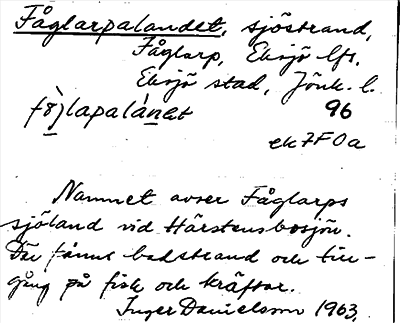 Fåglarpalandet, sjöstrand,
Fåglarp, Eksjö lfs.
Eksjö stad, Jönk. l.
96
ek 7F0a
Namnet avser Fåglarps
sjöland vid Härstensbosjön.
Där finns badstrand och till-
gång på fisk och kräftor.
Inger Danielsson 1963.